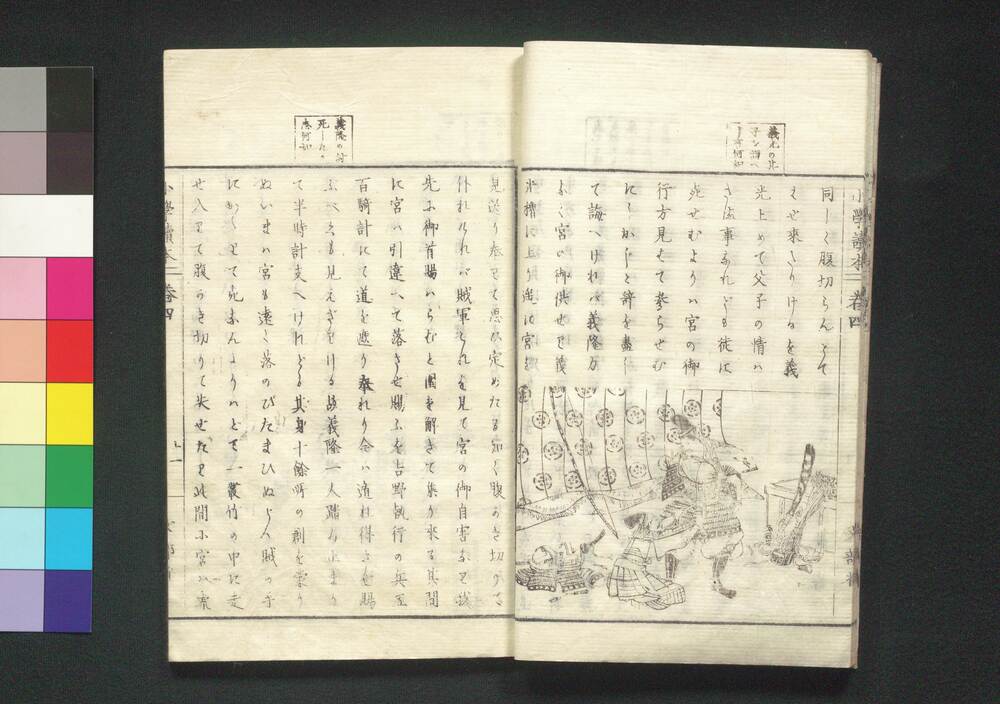 義光の其
子を誨へ
し言何如
小學讀本二 巻四
同しく腹切らんとて
はせ来たりけるを義
光止めて父子の情ハ
さる事なれども徒に
死せむよりハ宮の御
行方見せて参らせむ
にしかじと辞を盡し
て誨へければ義隆力
なく宮の御供せり義
光櫓に上り進ミ宮を
義隆の討
死したる
處何如
見送り奉りて思ひ定めたる如く腹かき切りて
仆れければ賊軍これを見て宮の御自害なり我
先に御首賜ハらむと圍を解きて集り来る其間
に宮ハ引違へて落させ賜ふを吉野執行の兵五
百騎計にて道を遮り奉れり今ハ遁れ得させ賜
ふべくも見えざりける故義隆一人踏み止まり
て半時計支へけれども其身十餘所の創を蒙り
ぬいまハ宮も遠く落のびたまひぬらん賊の手
にかゝりて死なんよりハとて一叢竹の中に走
せ入りて腹かき切りて失せたり此間に宮ハ高
小學讀本二 巻四
十一
文部省